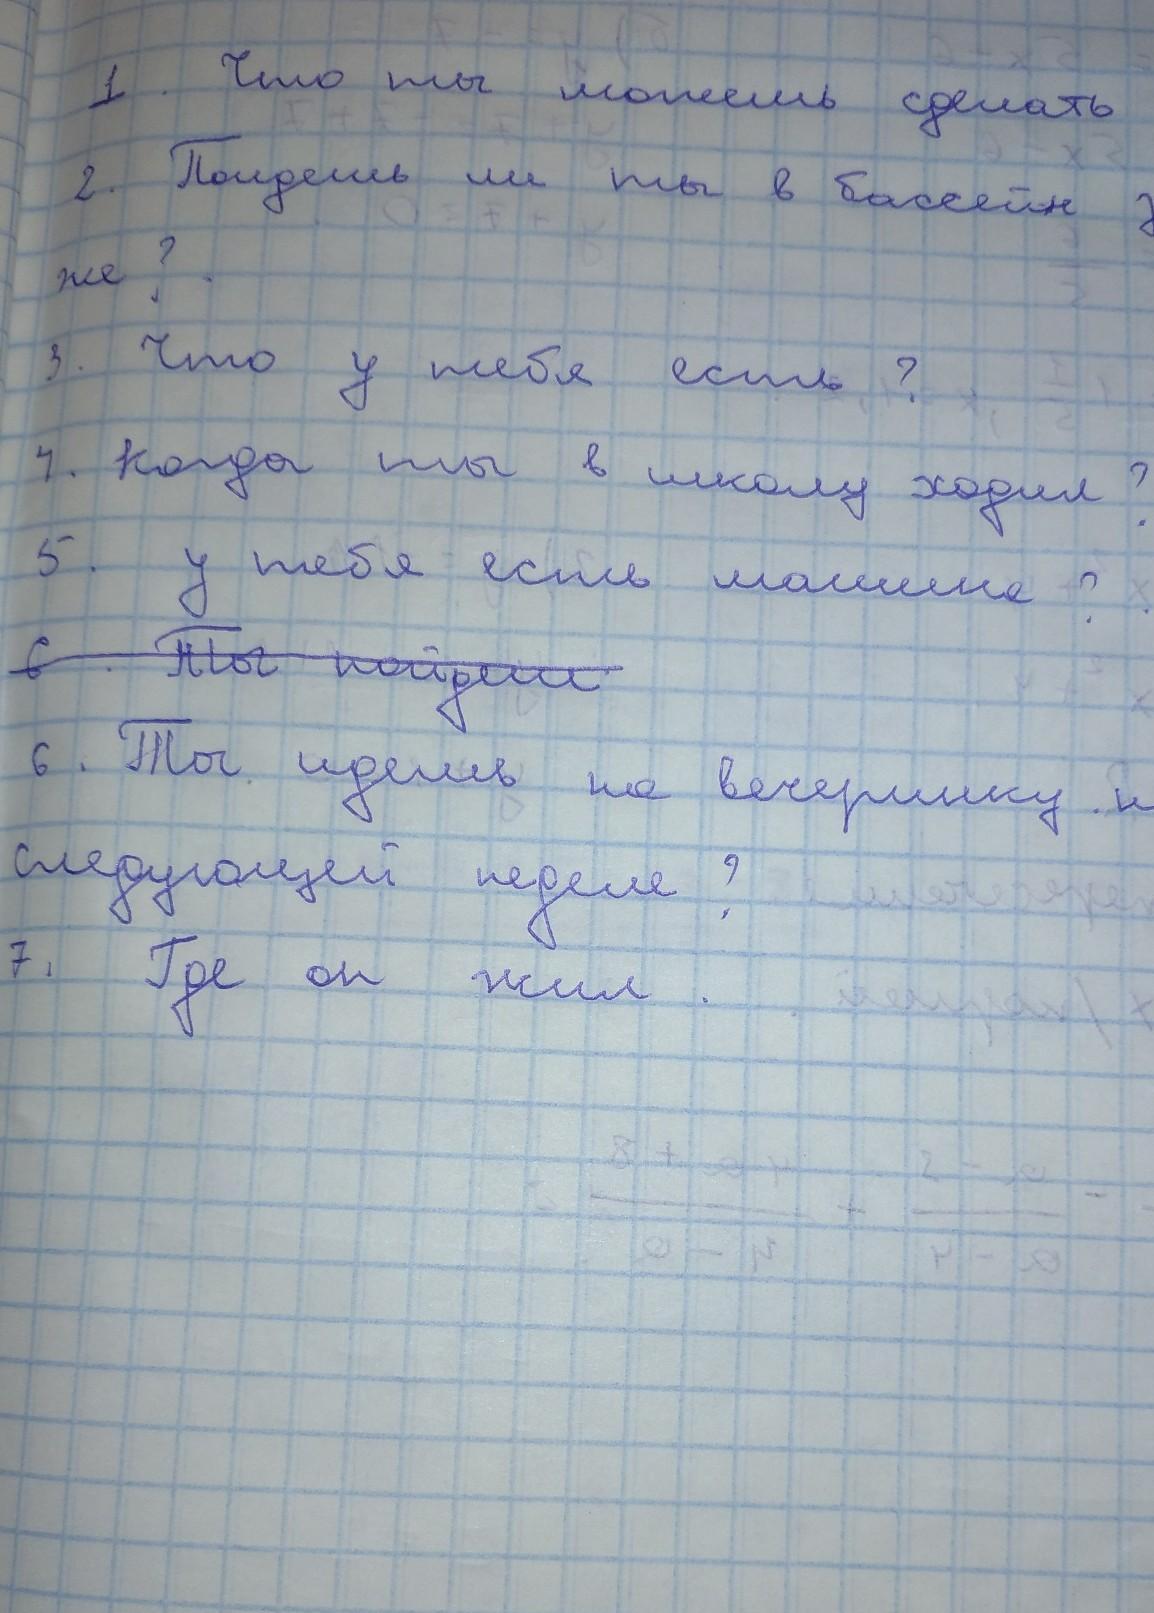 1. Что ты можешь сделать
2. Пойдешь ли ты в бассейн
же?
3. Что у тебя есть?
4. Когда ты в школу ходил?
5. у тебя есть машина?
6. Ты пойдеш
6. Ты идешь на вечеринку н
следующей неделе?
7. Где он жил.